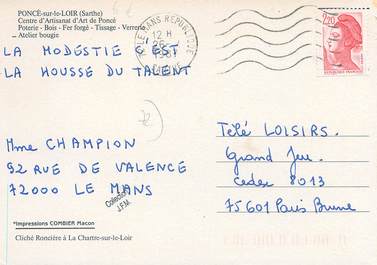 PONCÉ-sur-le-LOIR (Sarthe)
Centre d'Artisanat d'Art de Poncé
Poterie - Bois - Fer forgé - Tissage - Verrerie
Atelier bougie
LA MODESTIE C'EST
LA HOUSSE DU TALENT
Mme CHAMPION
92 RUE DE VALENCE
72000 LE MANS
Collection
J.F.M.
*Impressions COMBIER Macon
Cliché Roncière à La Chartre-sur-le-Loir
LE MANS REPUBLIQUE
12 H
SARTHE
2,20
Télé LOISIRS.
Grand Jeu.
Cedex 8013
75601 Paris Brune